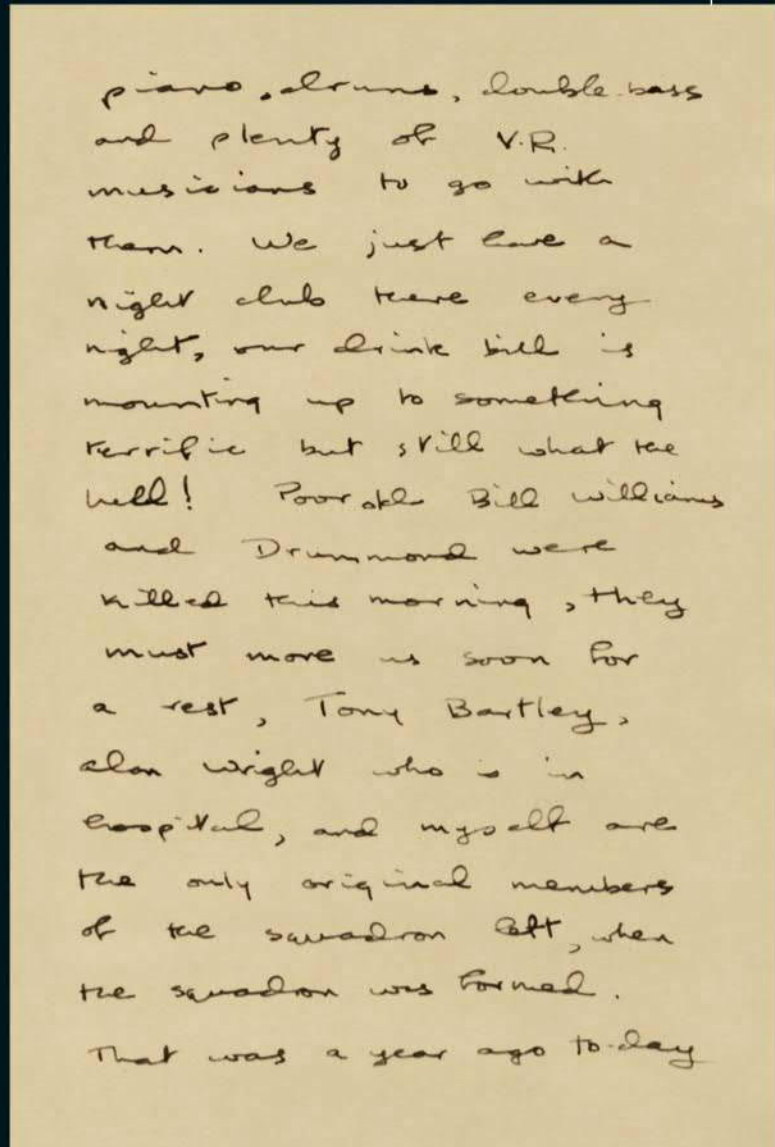 piano, drums, double-bass
and plenty of V.R.
musicians to go with
them. We just have a
night club there every
night, our drink bill is
mounting up to something
terrific but still what the
hell! Poor old Bill Williams
and Drummond were
killed this morning, they
must move us soon for
a rest, Tony Bartley,
Alan Wright who is in
hospital, and myself are
the only original members
of the squadron left, when
the squadron was formed.
That was a year ago to-day